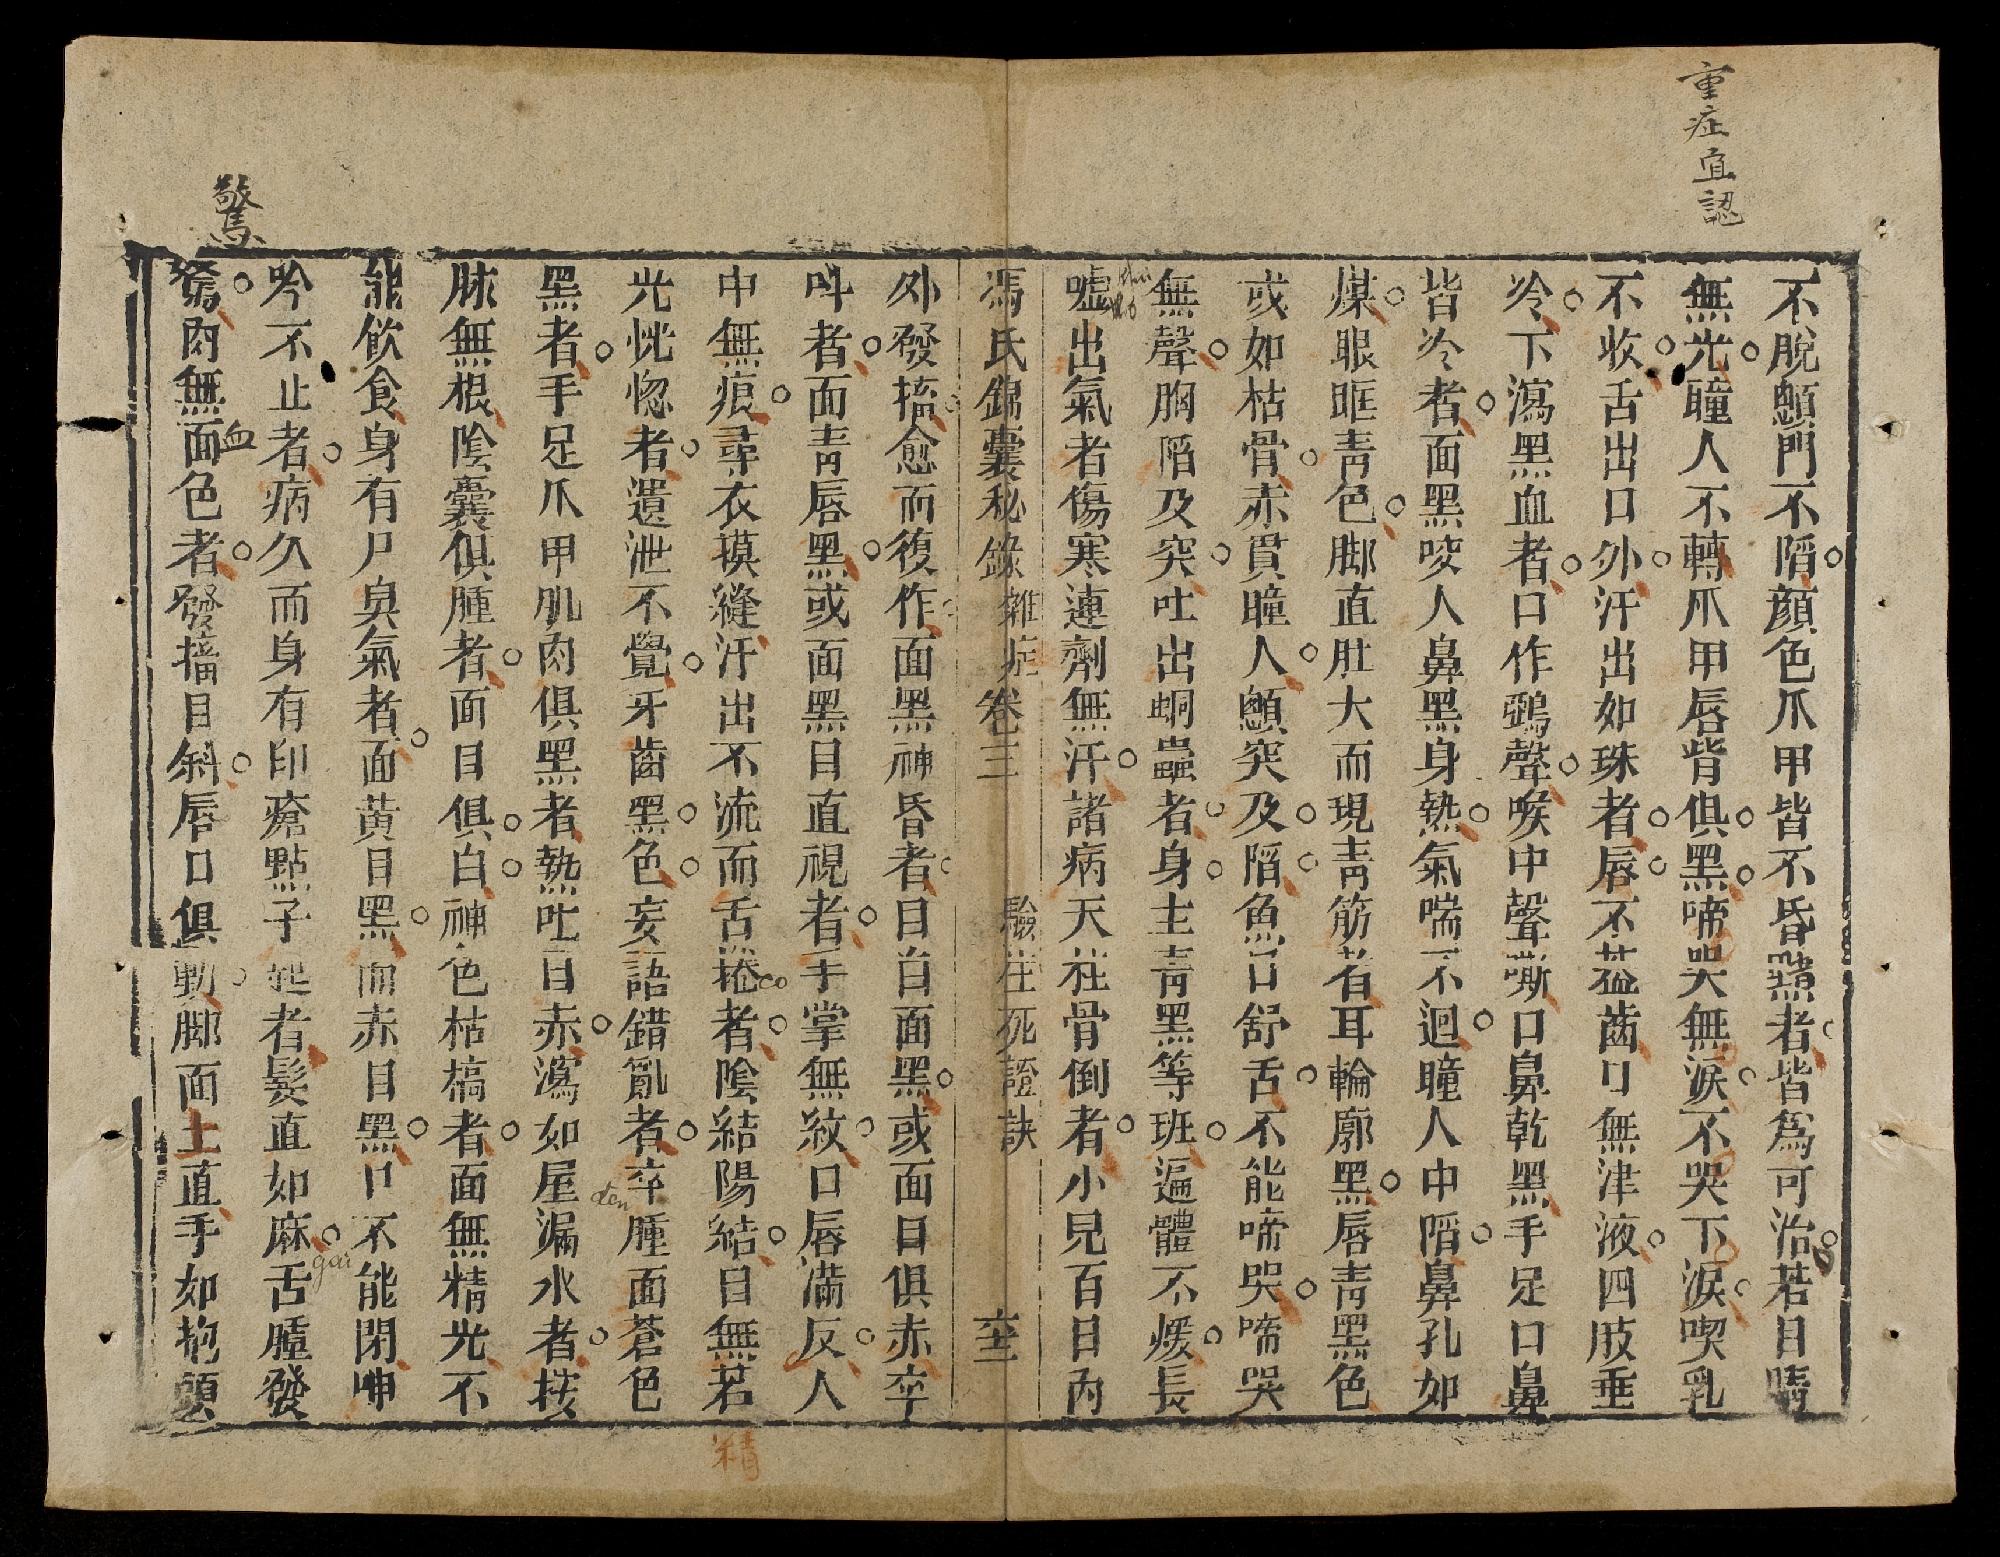 重症宜認
不脫顱門不陷顔色爪甲皆不昏黯者皆爲可治若目睛
無光瞳人不轉爪甲唇眥俱黑啼哭無淚不哭下淚喫乳
不收舌出口外汗出如珠者唇不葢齒口無津液四肢垂
冷下瀉黑血者口作鵶聲喉中聲嘶口鼻乾黑手足口鼻
皆冷者面黑咬人鼻黑身熱氣喘不迴瞳人中陷鼻孔如
煤眼眶靑色脚直肚大而現靑筋者耳輪廓黑唇靑黑色
或如枯骨赤貫瞳人顱突及陷魚口舒舌不能啼哭啼哭
無聲胸陷及突吐出蛔蟲者身主靑黑等班遍體不煖長
噓出氣者傷寒連劑無汗諸病天柱骨倒者小兒百日內
馮氏錦囊秘錄 雜症卷三 驗症死證訣 六十三
外發搐愈而復作面黑神昏者目白面黑或面目俱赤卒
呌者面靑唇黑或面黑目直視者手掌無紋口唇滿反人
中無痕尋衣摸縫汗出不流而舌捲者陰結陽結目無若
光恍惚者遺泄不覺牙齒黑色妄語錯亂者卒腫面蒼色
黑者手足爪甲肌肉俱黑者熱吐目赤瀉如屋漏水者按
脉無根陰囊俱腫者面目俱白神色枯槁者面無精光不
能飲食身有尸臭氣者面黃目黑而赤目黑口不能閉呻
吟不止者病久而身有印瘡點子起者髮直如麻舌腫發
驚肉無面色者發搐目斜唇口俱動脚面土直手如抱頭
驚
血
精
co
den
gai